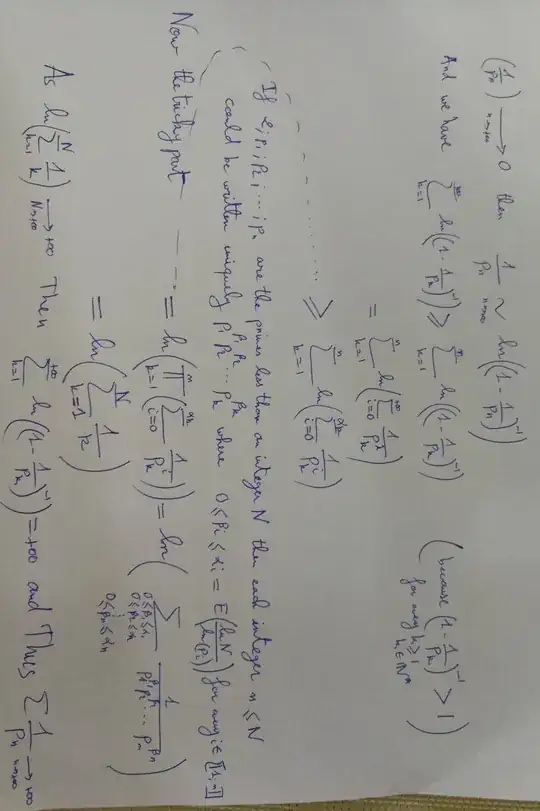 (1/pₙ) ⟶ 0 n→+∞ then 1/pₙ ~ n→+∞ ln((1 - 1/pₙ)⁻¹)
And we have +∞ Σ k=1 ln((1 - 1/pₖ)⁻¹) ≥ n Σ k=1 ln((1 - 1/pₖ)⁻¹) (because (1 - 1/pₖ)⁻¹ > 1
for any k ≥ 1
k ∈ ℕ*)
= n Σ k=1 ln(+∞ Σ i=0 1/pₖⁱ)
≥ n Σ k=1 ln(αₖ Σ i=0 1/pₖⁱ)
If p₁, p₂, ..., pₙ are the primes less than an integer N then each integer n ≤ N
could be written uniquely p₁^β₁ p₂^β₂ ... pₖ^βₖ where 0 ≤ βᵢ ≤ αᵢ = E(ln N/ln(pᵢ)) for any i ∈ ⟦1,n⟧
Now the tricky part ---- = ln(n Π k=1 (αₖ Σ i=0 1/pₖⁱ)) = ln(Σ 0≤β₁≤α₁ 0≤β₂≤α₂ ⋮ 0≤βₙ≤αₙ 1/(p₁^β₁ p₂^β₂ ... pₙ^βₙ))
= ln(N Σ k=1 1/k)
As ln(N Σ k=1 1/k) ⟶ +∞ N→+∞ Then +∞ Σ k=1 ln((1 - 1/pₖ)⁻¹) = +∞ and Thus Σ 1/pₙ ⟶ +∞ n→+∞